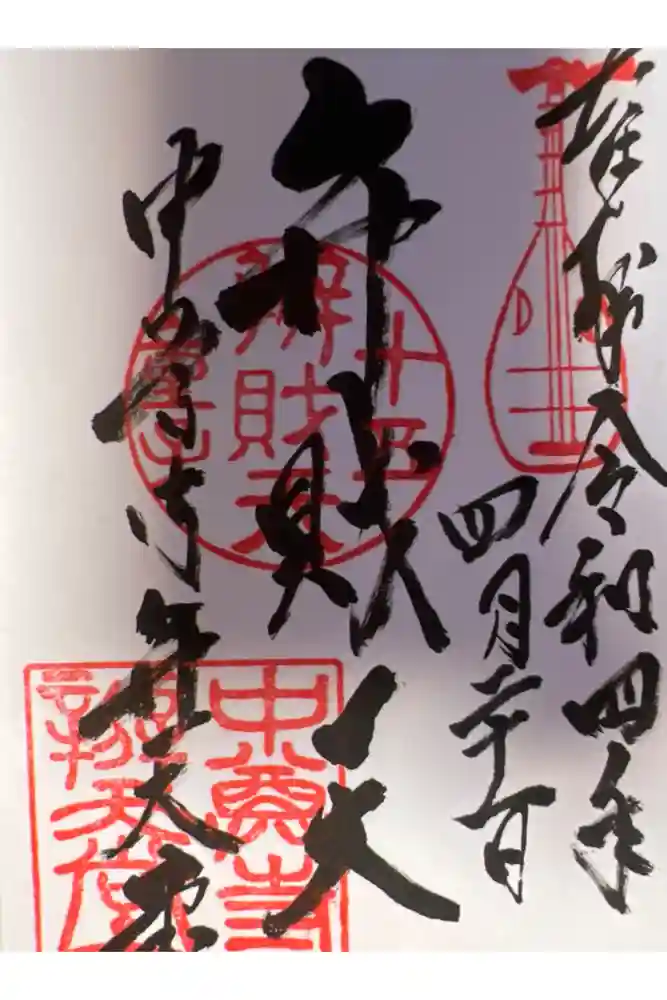 奉拝 令和四年
四月 日
弁財天
中尊寺 弁天堂
十五
辨財天
童子
中尊寺
辨天堂